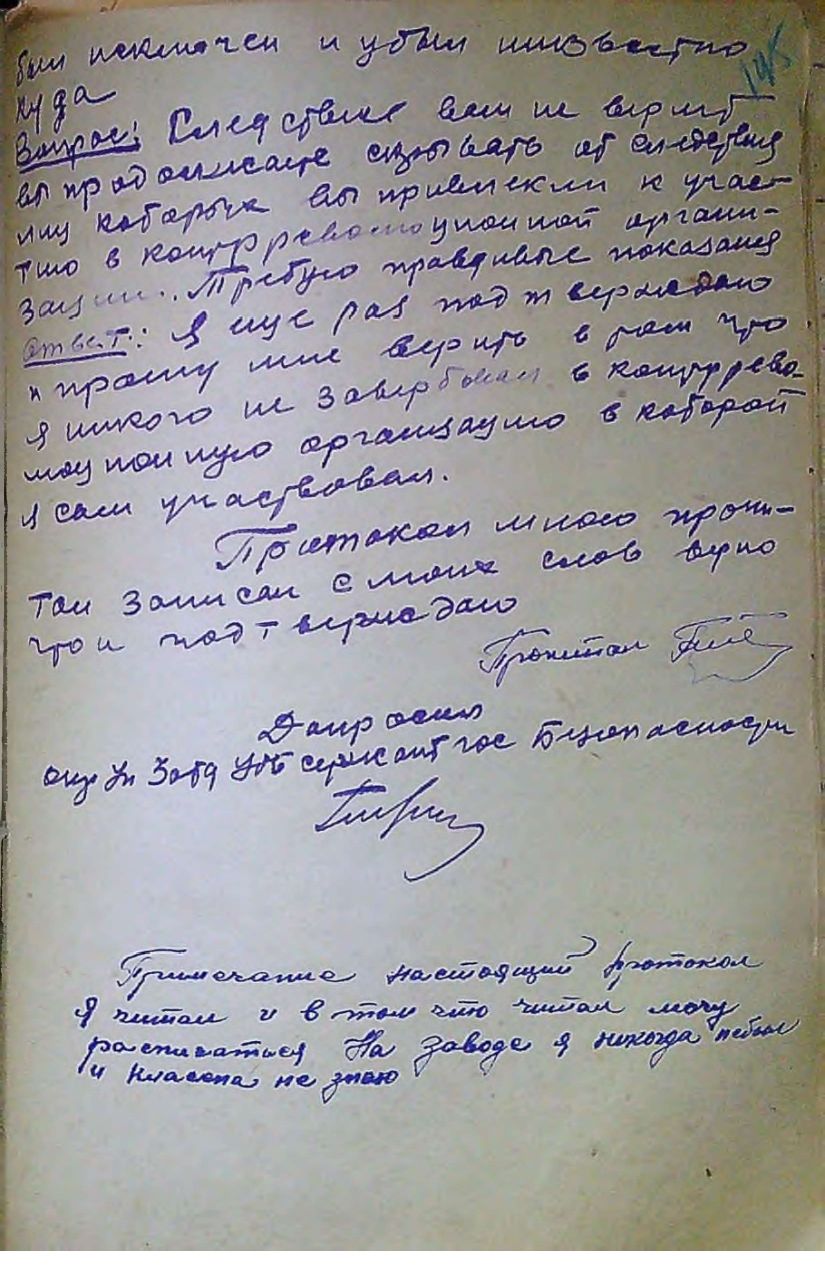 был исключен и убыл неизвестно
145
куда
Вопрос: Следствие вам не верит
вы продолжаете скрывать от следствия
лиц которых вы привлекли к учас-
тию в контрреволюционной органи-
зации. Требую правдивые показания
Ответ: Я еще раз подтверждаю
и прошу мне верить в том что
я никого не завербовал в контррево-
люционную организацию в которой
я сам участвовал.
Протокол мною прочи-
тан записан с моих слов верно
что и подтверждаю
Прочитал
Допросил
Опер Уп 3 отд УГБ сержант гос Безопасности
Примечание настоящий протокол
я читал и в том что читал могу
расписаться На заводе я никогда небыл
и Класена не знаю